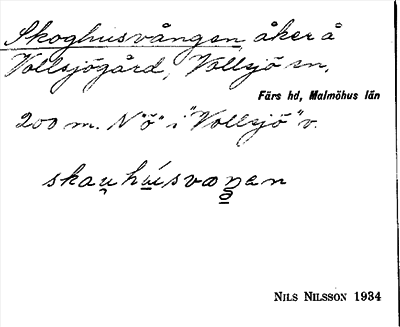 Skoghusvången, åker å
Vollsjögård, Vollsjö sn,
Färs hd, Malmöhus län
200 m. N "ö" i "Vollsjö" v.
skau̯hu̱ʹsvaŋ̱en
NILS NILSSON 1934